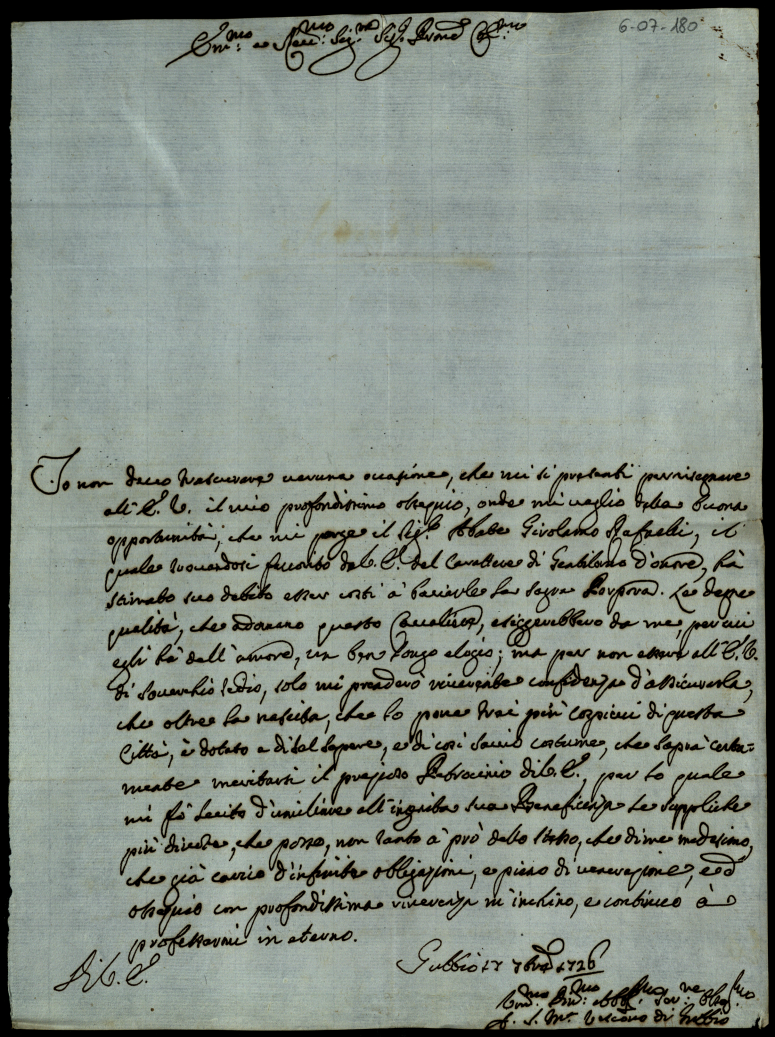 6-07-180
Em:mo e Rev:mo Sig:re Sig:re Pron:e Col:mo
Io non devo trascurare veruna occasione, che mi si presenti per rassegnare
all'E. V. il mio profondissimo ossequio, onde mi vaglio della buona
opportunità, che mi porge il Sig:r Abate Girolamo Rafaelli, il
quale trovandosi favorito da V. E. del Carattere di Gentilomo d'onore, hà
stimato suo debito esser costì à baciarle la Sagra Porpora. Le degne
qualità, che adornano questo Cavaliere, esiggerebbero da me, per cui
egli hà dell'amore, un ben longo elogio; ma per non essere all'E. V.
di soverchio tedio, solo mi prenderò riverente confidenza d'assicurarla,
che oltre la nascita, che lo pone trai più cospicui di questa
Città, è dotato e di tal sapere, e di così savio costume, che saprà certa-
mente meritarsi il prezioso Patrocinio di V. E., per lo quale
mi fò lecito d'umiliare all'innata sua Beneficenza le suppliche
più divote, che posso, non tanto à prò dello stesso, che di me medesimo,
che già carico d'infinite obligazioni, e pieno di venerazione, ed
ossequio con profondissima riverenza m'inchino, e continuo à
professarmi in eterno.
Di V. E.
Gubbio 17 7bre 1726
Um:mo Dev:mo Obbl:mo Ser:re Osseq:mo
f. S. M:a Vescovo di Gubbio